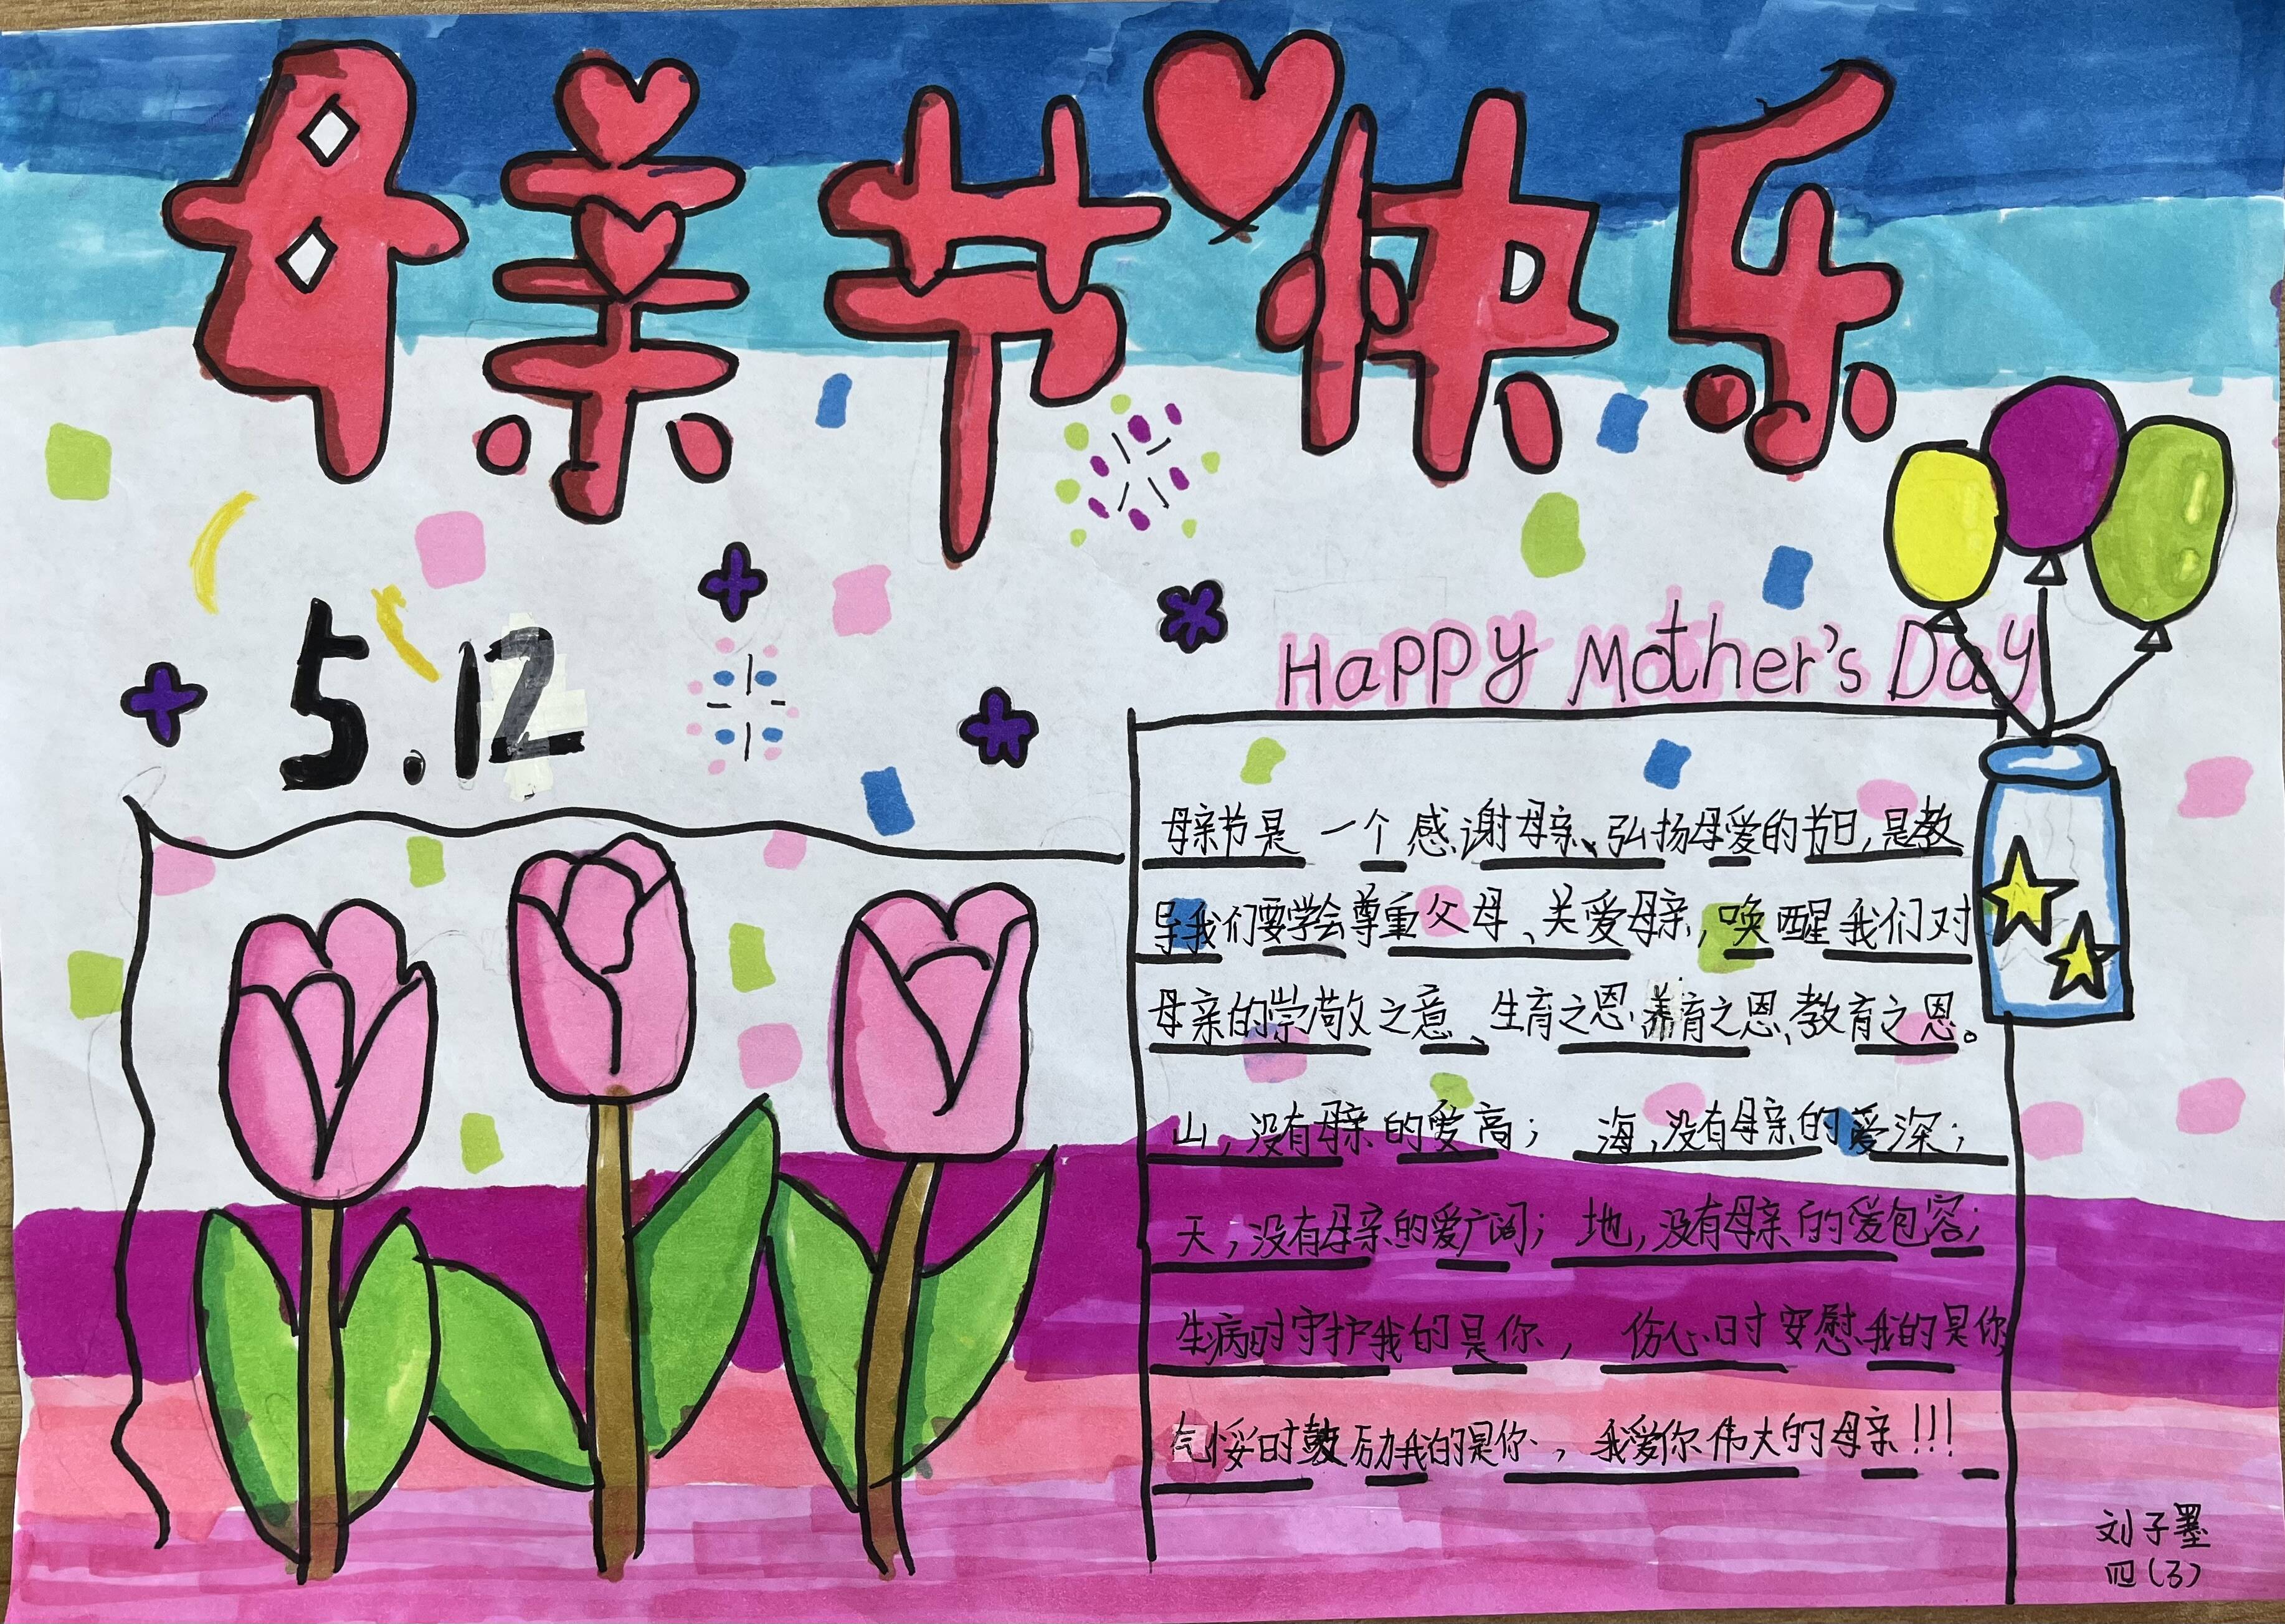 母亲节快乐
5.12
Happy Mother's Day
母亲节是一个感谢母亲、弘扬母爱的节日,是教
导我们要学会尊重父母、关爱母亲,唤醒我们对
母亲的崇敬之意、生育之恩、养育之恩、教育之恩。
山,没有母亲的爱高; 海,没有母亲的爱深;
天,没有母亲的爱广阔; 地,没有母亲的爱包容;
生病时守护我的是你, 伤心时安慰我的是你,
气馁时鼓励我的是你,我爱你伟大的母亲!!!
刘子墨
四(3)